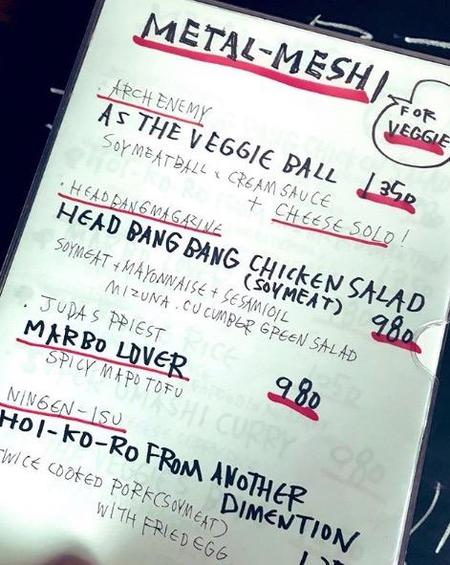 METAL-MESHI
FOR
VEGGIE
・ARCH ENEMY
AS THE VEGGIE BALL
SOYMEATBALL × CREAM SAUCE
+ CHEESE SOLO! 1350
・HEADBANG MAGAZINE
HEAD BANG BANG CHICKEN SALAD
(SOYMEAT)
SOYMEAT + MAYONNAISE + SESAMIOIL 980
MIZUNA. CUCUMBER GREEN SALAD
・JUDAS PRIEST
MARBO LOVER
SPICY MAPO TOFU 980
NINGEN-ISU
HOI-KO-RO FROM ANOTHER
DIMENTION
TWICE COOKED PORK (SOYMEAT)
WITH FRIED EGG